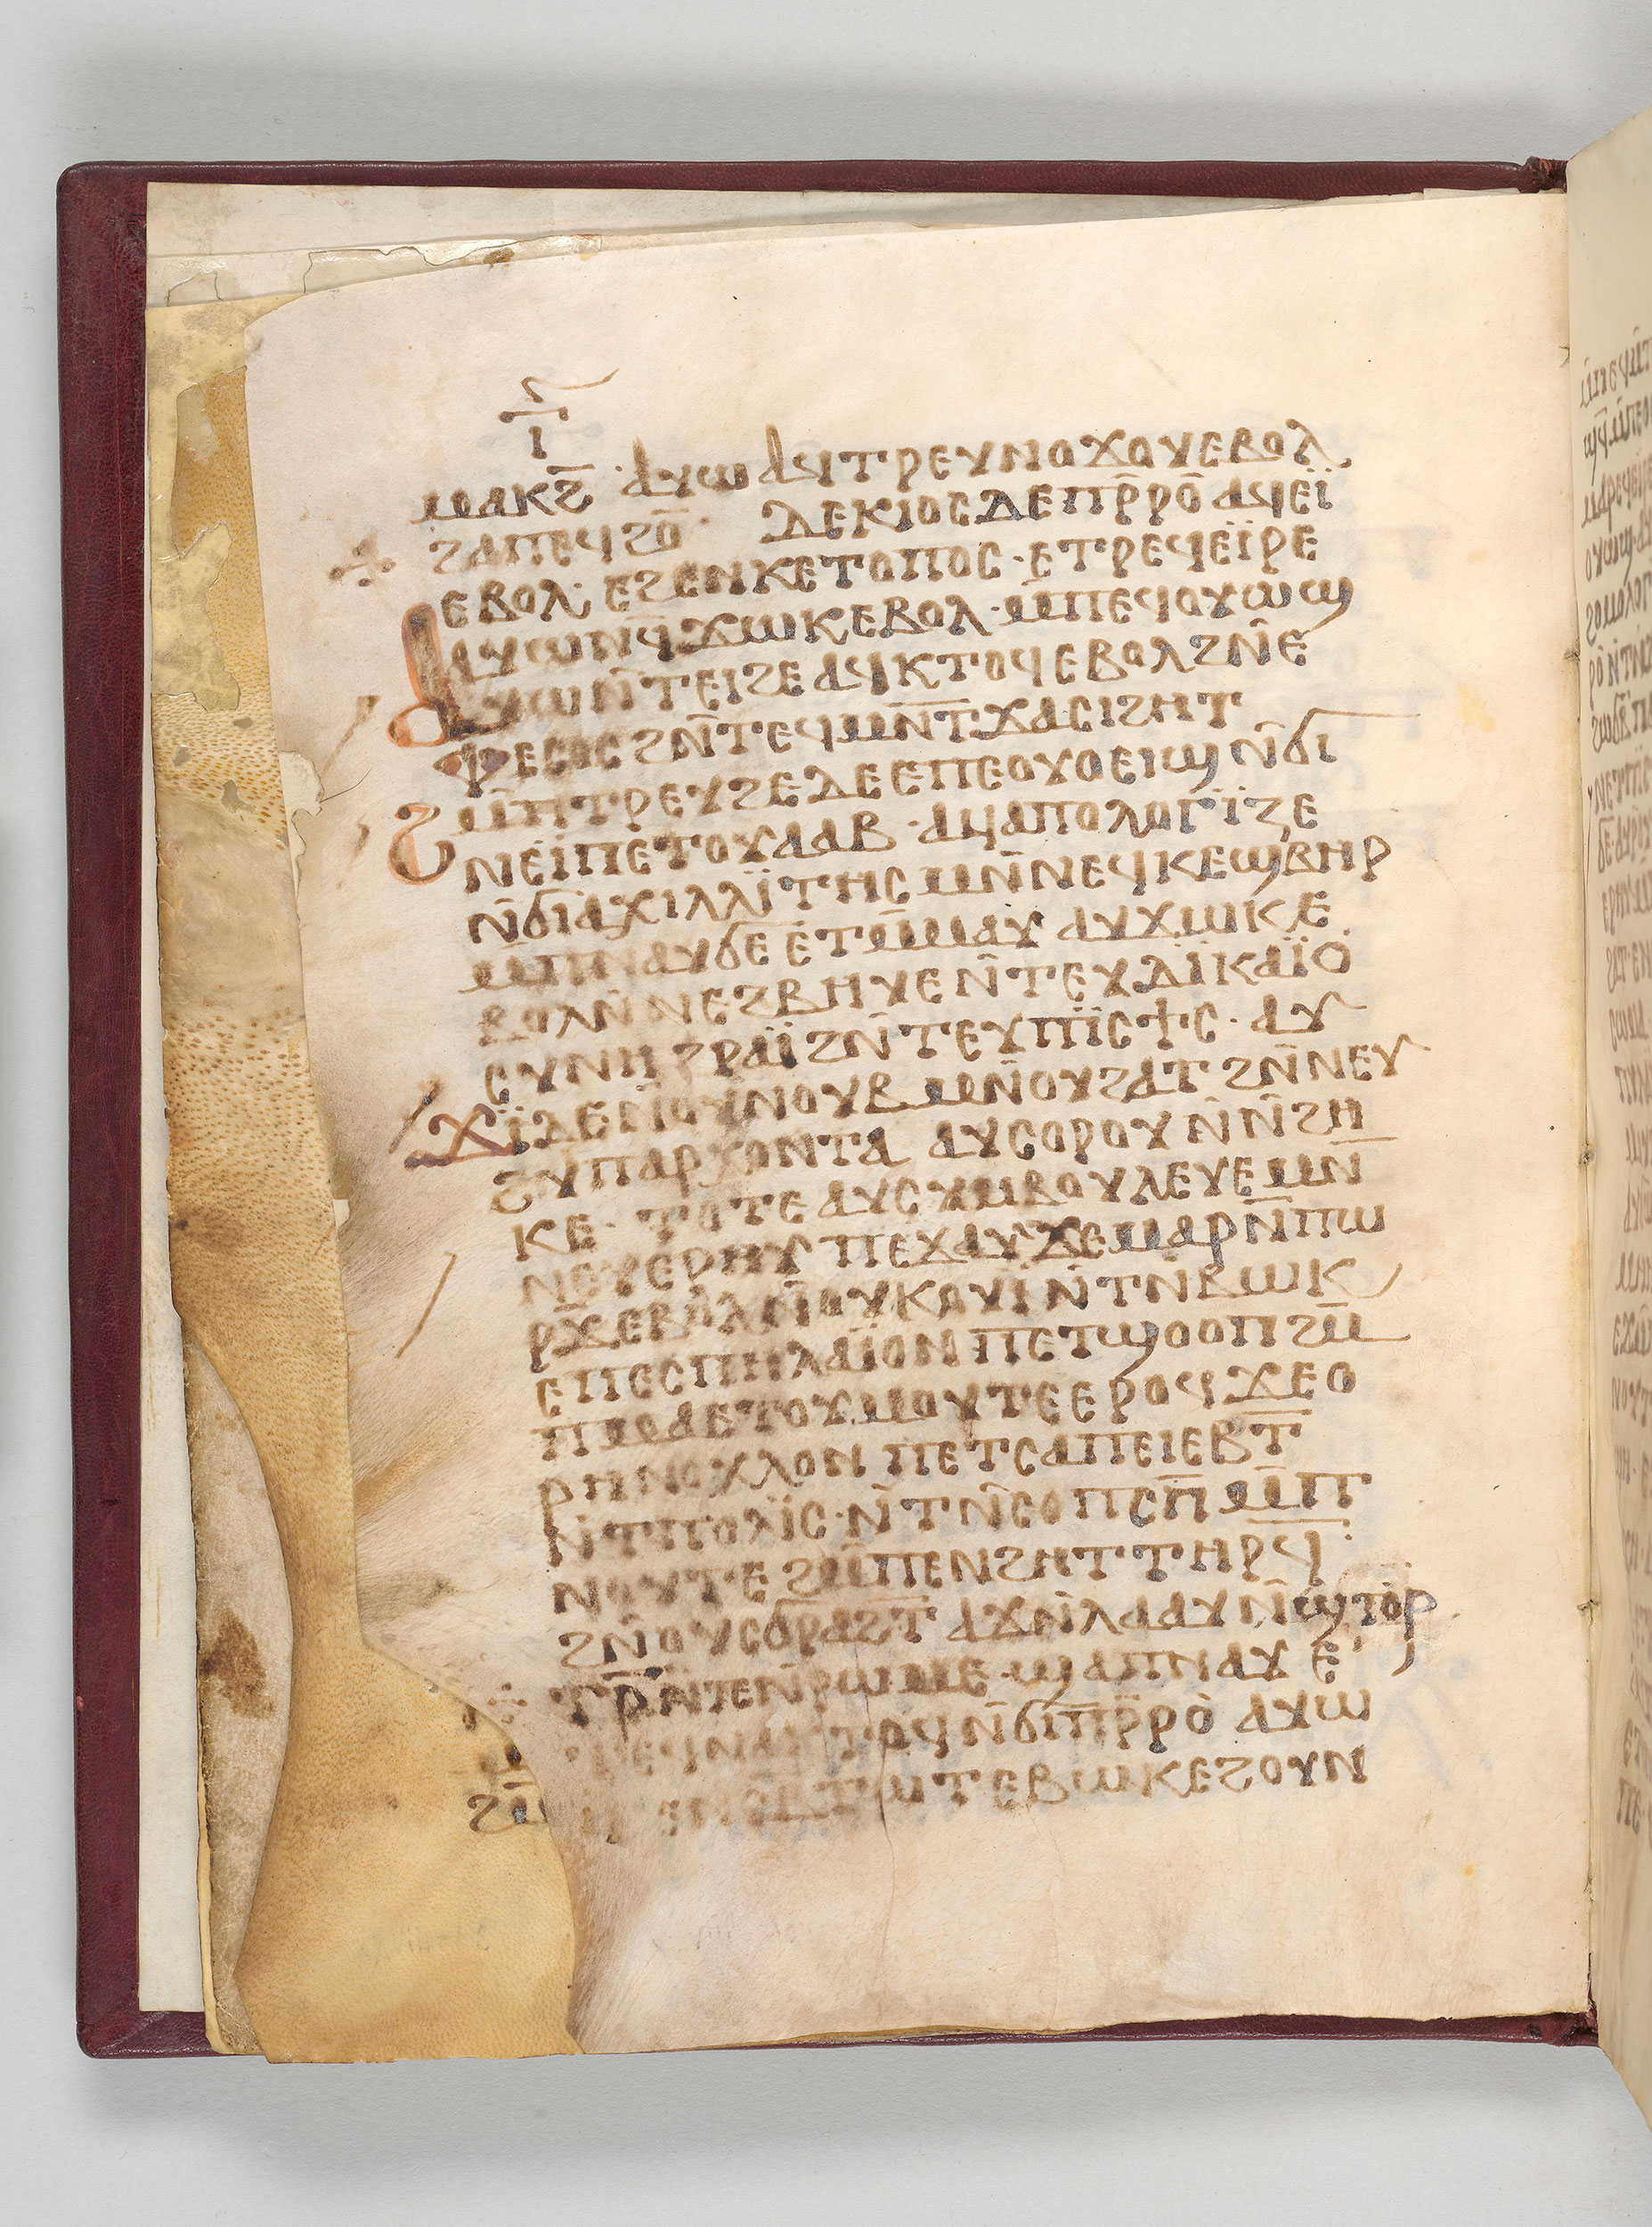 ⲓ̅
ⲙⲁⲕϩ̅ · ⲁⲩⲱ ⲁϥⲧⲣⲉⲩⲛⲟϫⲟⲩⲉⲃⲟⲗ
ϩⲁⲡⲉϥϩⲟ̅ · ⲇⲉⲕⲓⲟⲥⲇⲉⲡⲣ̅ⲣⲟ̅ ⲁϥⲉⲓ̈
ⲉⲃⲟⲗ · ⲉϩⲉⲛⲕⲉⲧⲟⲡⲟⲥ · ⲉⲧⲣⲉϥⲉⲓ̈ⲣⲉ
ⲁⲩⲱⲛϥ̅ϫⲱⲕⲉⲃⲟⲗ · ⲙⲡⲉϥⲟⲩⲱϣ
ⲁⲩⲱⲛ̅ⲧⲉⲓϩⲉ ⲁϥⲕⲧⲟϥⲉⲃⲟⲗϩⲛ̅ⲉ
ⲫⲉⲥⲟⲥ ϩⲛ̅ⲧⲉϥⲙⲛ̅ⲧ̅ϫⲁⲥⲓϩⲏⲧ
ϩⲙ̅ⲡⲧⲣⲉⲩϩⲉⲇⲉⲉⲡⲉⲟⲩⲟⲉⲓϣ ⲛ̅ϭⲓ
ⲛⲉⲓ̈ⲡⲉⲧⲟⲩⲁⲁⲃ · ⲁϥⲁⲡⲟⲗⲟⲅⲓ̈ⲍⲉ
ⲛ̅ϭⲓⲁⲭⲓⲗⲗⲓ̈ⲧⲏⲥ ⲙⲛ̅ⲛⲉϥⲕⲉϣⲃⲏⲣ
ⲙⲡⲛⲁⲩϭⲉ ⲉⲧⲙ̅ⲙⲁⲩ ⲁⲩϫⲱⲕⲉ
ⲃⲟⲗⲛ̅ⲛⲉϩⲃⲏⲩⲉ ⲛ̅ⲧⲉⲩⲇⲓ̈ⲕⲁⲓ̈ⲟ
ⲥⲩⲛⲏ ϩⲣⲁⲓ̈ ϩⲛ̅ⲧⲉⲩⲡⲓ̈ⲥϯⲥ · ⲁⲩ
ϫⲓ̈ⲇⲉⲛ̅ⲟⲩⲛⲟⲩⲃ ⲙⲛ̅ⲟⲩϩⲁⲧ ϩⲛ̅ⲛⲉⲩ
ϩⲩⲡⲁⲣⲭⲟⲛⲧⲁ ⲁⲩⲥⲟⲣⲟⲩ ⲛ̅ⲛ̅ϩⲏ
ⲕⲉ · ⲧⲟⲧⲉ ⲁⲩⲥⲩⲙⲃⲟⲩⲗⲉⲩⲉ ⲙⲛ̅
ⲛⲉⲩⲉⲣⲏⲩ ⲡⲉϫⲁⲩϫⲉⲙⲁⲣⲛ̅ⲡⲱ
ⲣϫ̅ⲉⲃⲟⲗⲛ̅ⲟⲩⲕⲟⲩⲓ̈ ⲛ̅ⲧⲛ̅ⲃⲱⲕ
ⲉⲡⲉⲥⲡⲏⲗⲁⲓ̈ⲟⲛ ⲡⲉⲧϣⲟⲟⲡ ϩⲙ̅
ⲡⲙⲁⲉⲧⲟⲩⲙⲟⲩⲧⲉⲉⲣⲟϥ ϫⲉⲟ
ⲣⲏⲛⲟⲭⲗⲟⲛ ⲡⲉⲧⲥⲁⲡⲉⲓⲉⲃⲧ̅
ⲛ̅ⲧⲡⲟⲗⲓ̈ⲥ · ⲛ̅ⲧⲛ̅ⲥⲟⲡⲥⲡ̅ ⲙ̅ⲡ
ⲛⲟⲩⲧⲉ ϩⲙ̅ⲡⲉⲛϩⲏⲧ ⲧⲏⲣϥ̅ ·
ϩⲛ̅ⲟⲩⲥϭⲣⲁϩⲧ̅ ⲁϫⲛ̅ⲗⲁⲁⲩ ⲛ̅ϣⲧⲟⲣ
ⲧⲣ̅ ⲛ̅ⲧⲉⲛ̅ⲣⲱⲙⲉ · ϣⲁⲡⲛⲁⲩ ⲉ
ⲧⲉϥⲛⲁⲕⲧⲟϥ ⲛ̅ϭⲓⲡⲣ̅ⲣⲟ ⲁⲩⲱ
ⲧⲉⲃⲱⲕⲉϩⲟⲩⲛ